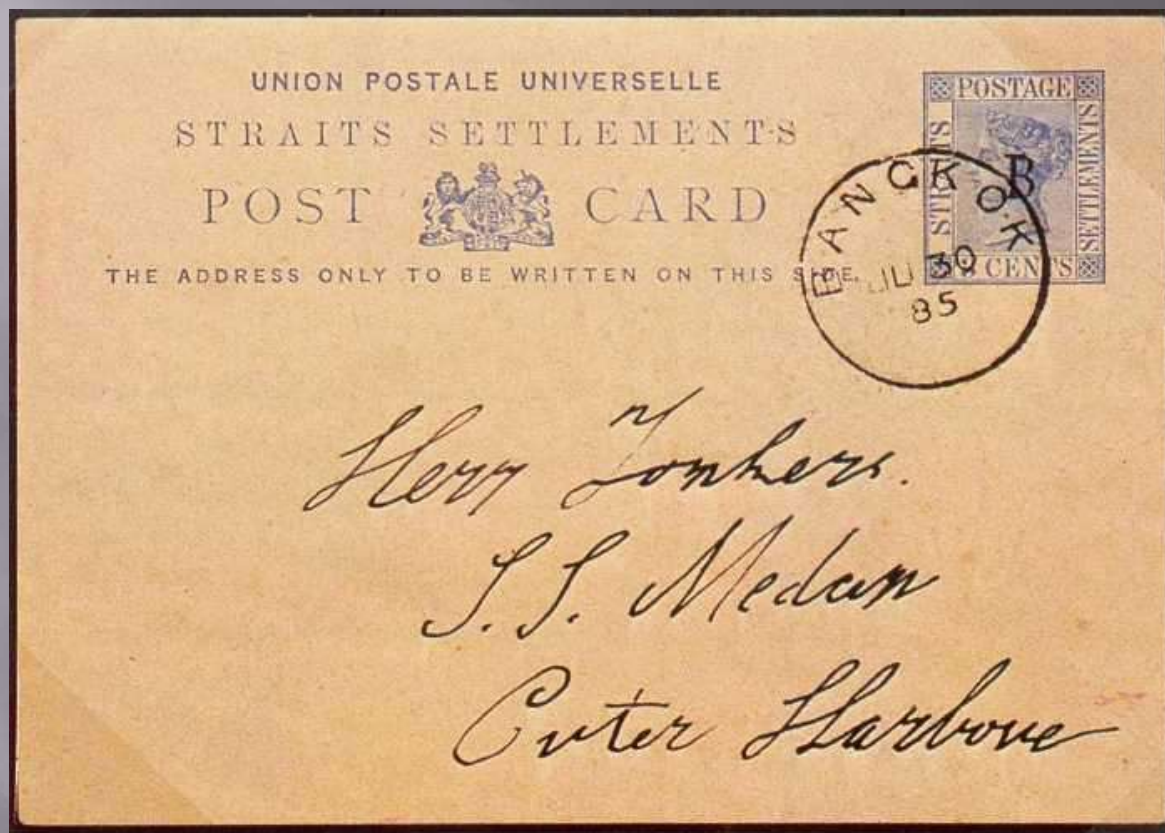 UNION POSTALE UNIVERSELLE
STRAITS SETTLEMENTS
POST CARD
THE ADDRESS ONLY TO BE WRITTEN ON THIS SIDE.
POSTAGE
STRAITS
SETTLEMENTS
CENTS
B
BANGKOK
JU 30
85
Herr Jonkers.
S.S. Medan
Outer Harbour